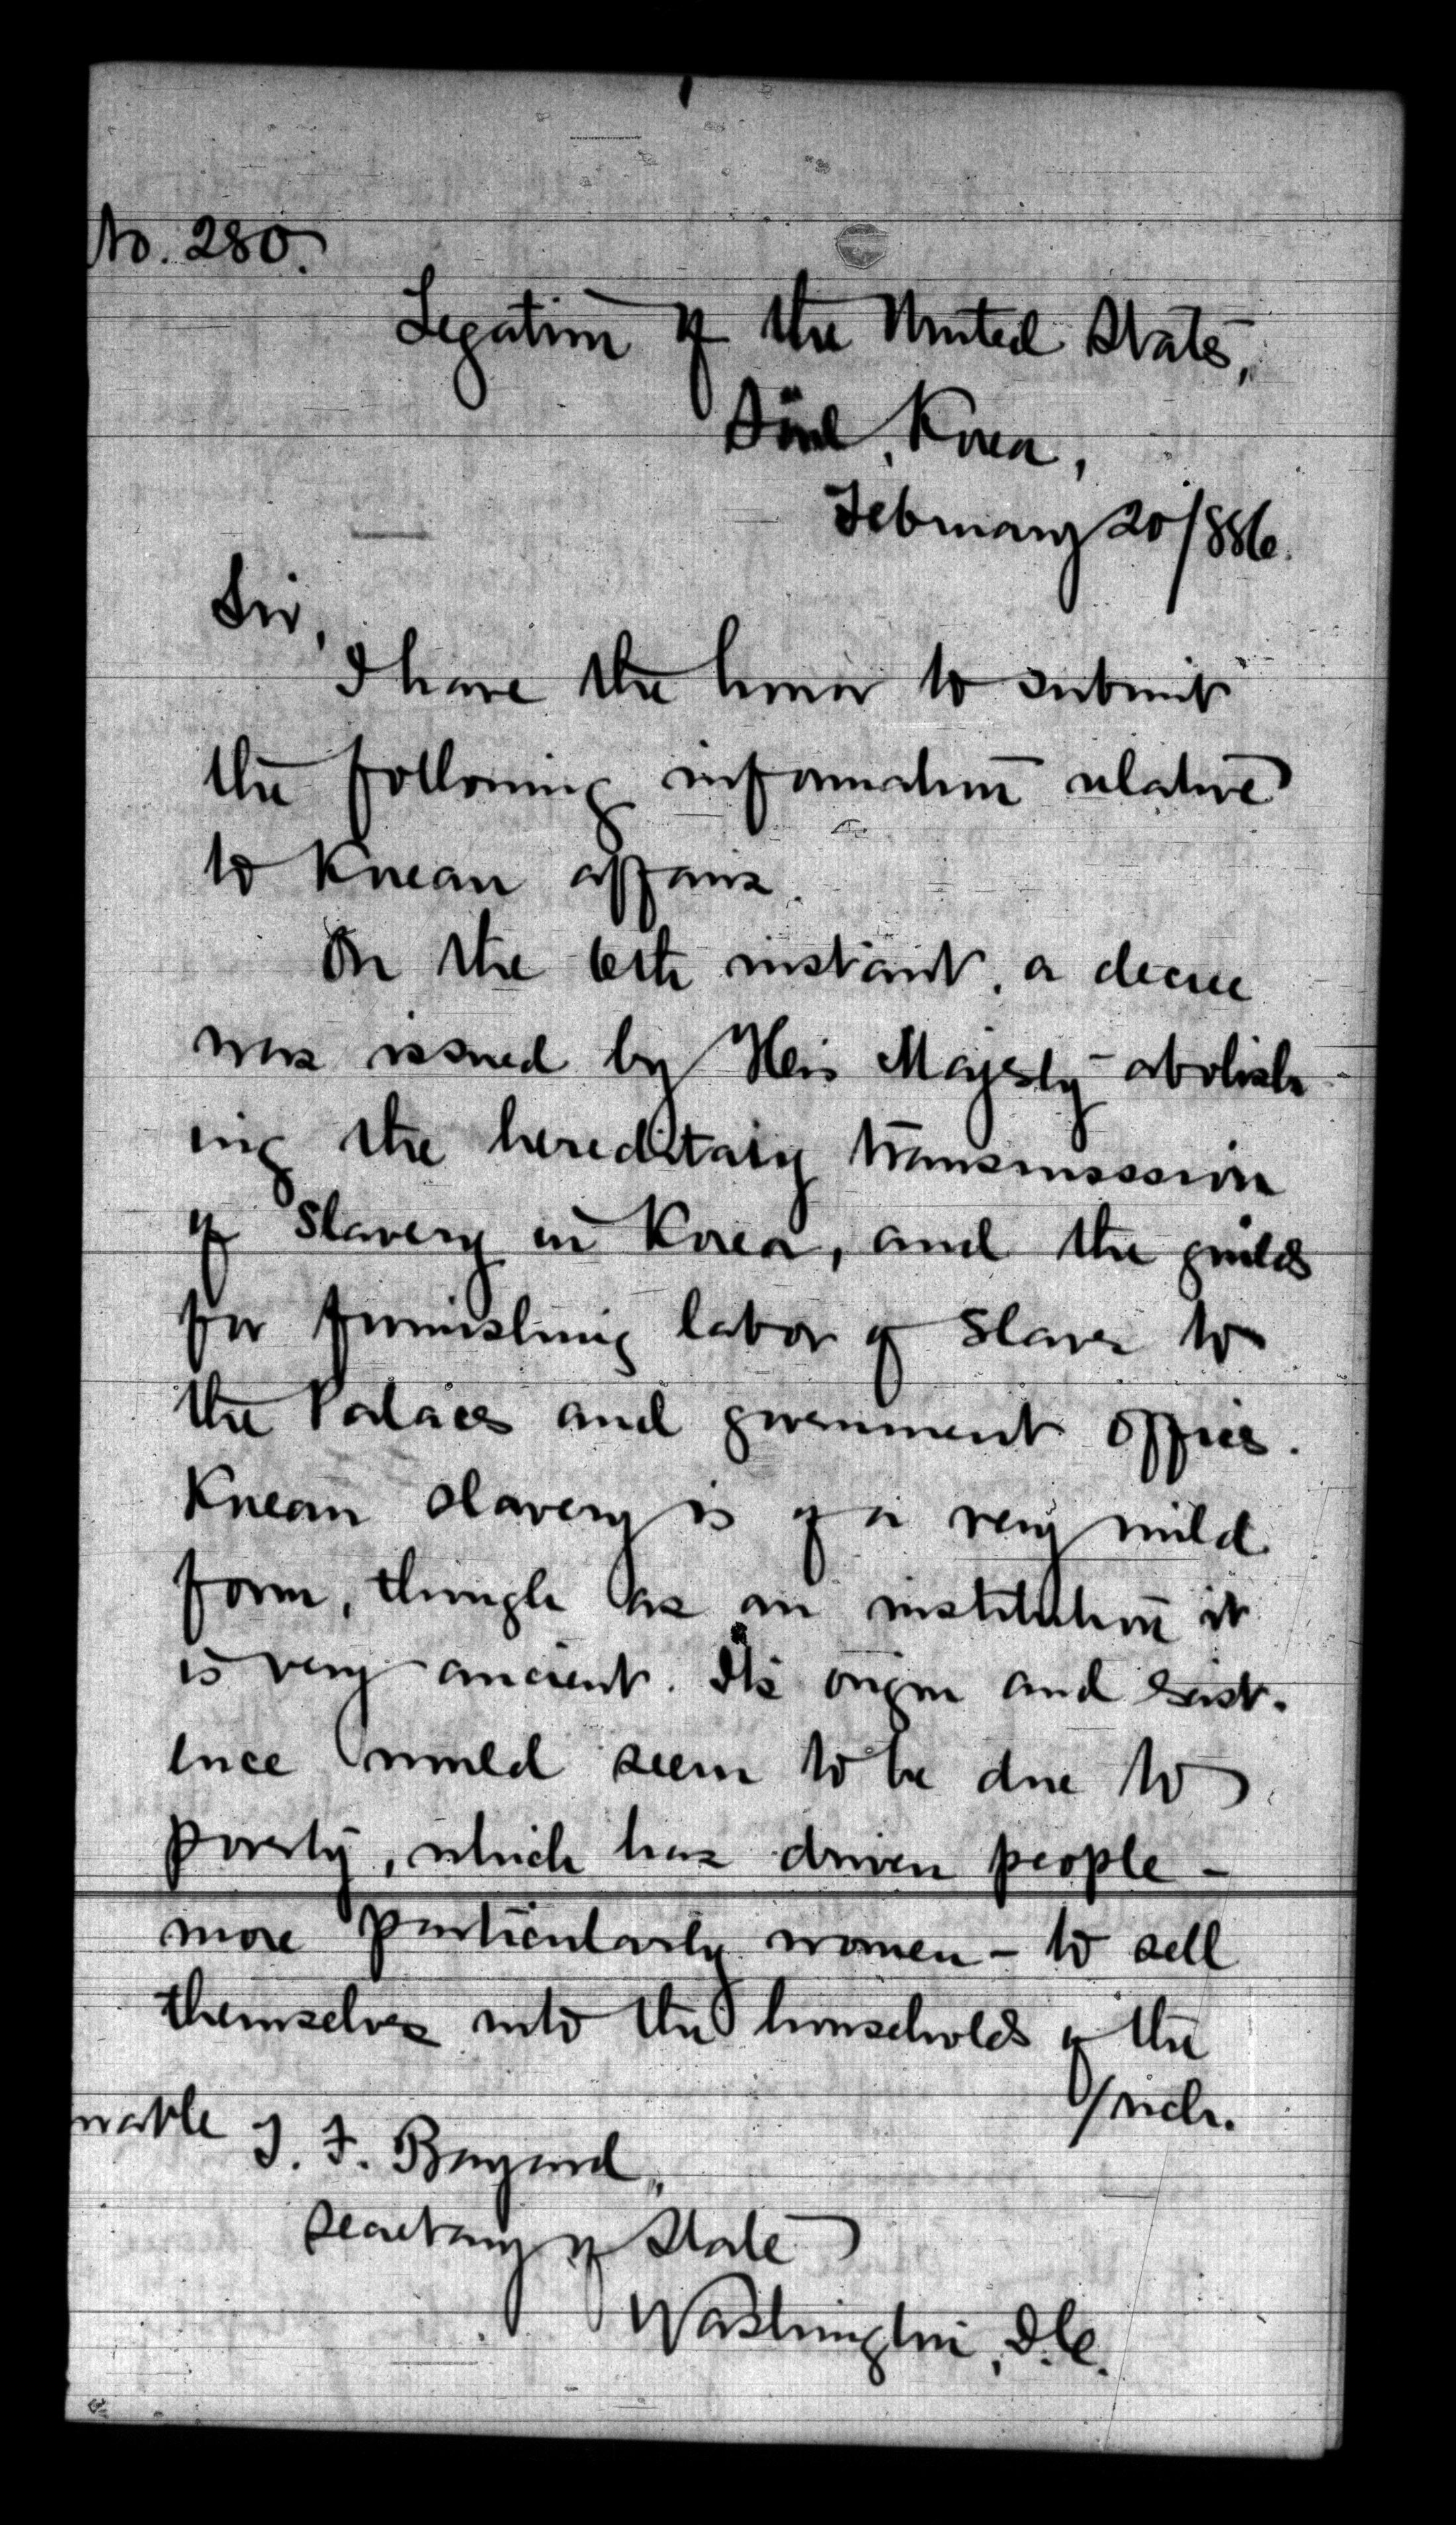 No. 280.
Legation of the United States,
Söul, Korea,
February 20/886.
Sir,
I have the honor to submit
the following information relative
to Korean affairs.
On the 6th instant, a decree
was issued by His Majesty abolish
ing the hereditary transmission
of slavery in Korea, and the guilds
for furnishing labor of slaves to
the Palaces and government offices.
Korean slavery is of a very mild
form, though as an institution it
is very ancient. Its origin and exist-
ence would seem to be due to
poverty, which has driven people -
more particularly women - to sell
themselves into the households of the
/rich.
orable T. F. Bayard,
Secretary of State
Washington, D.C.